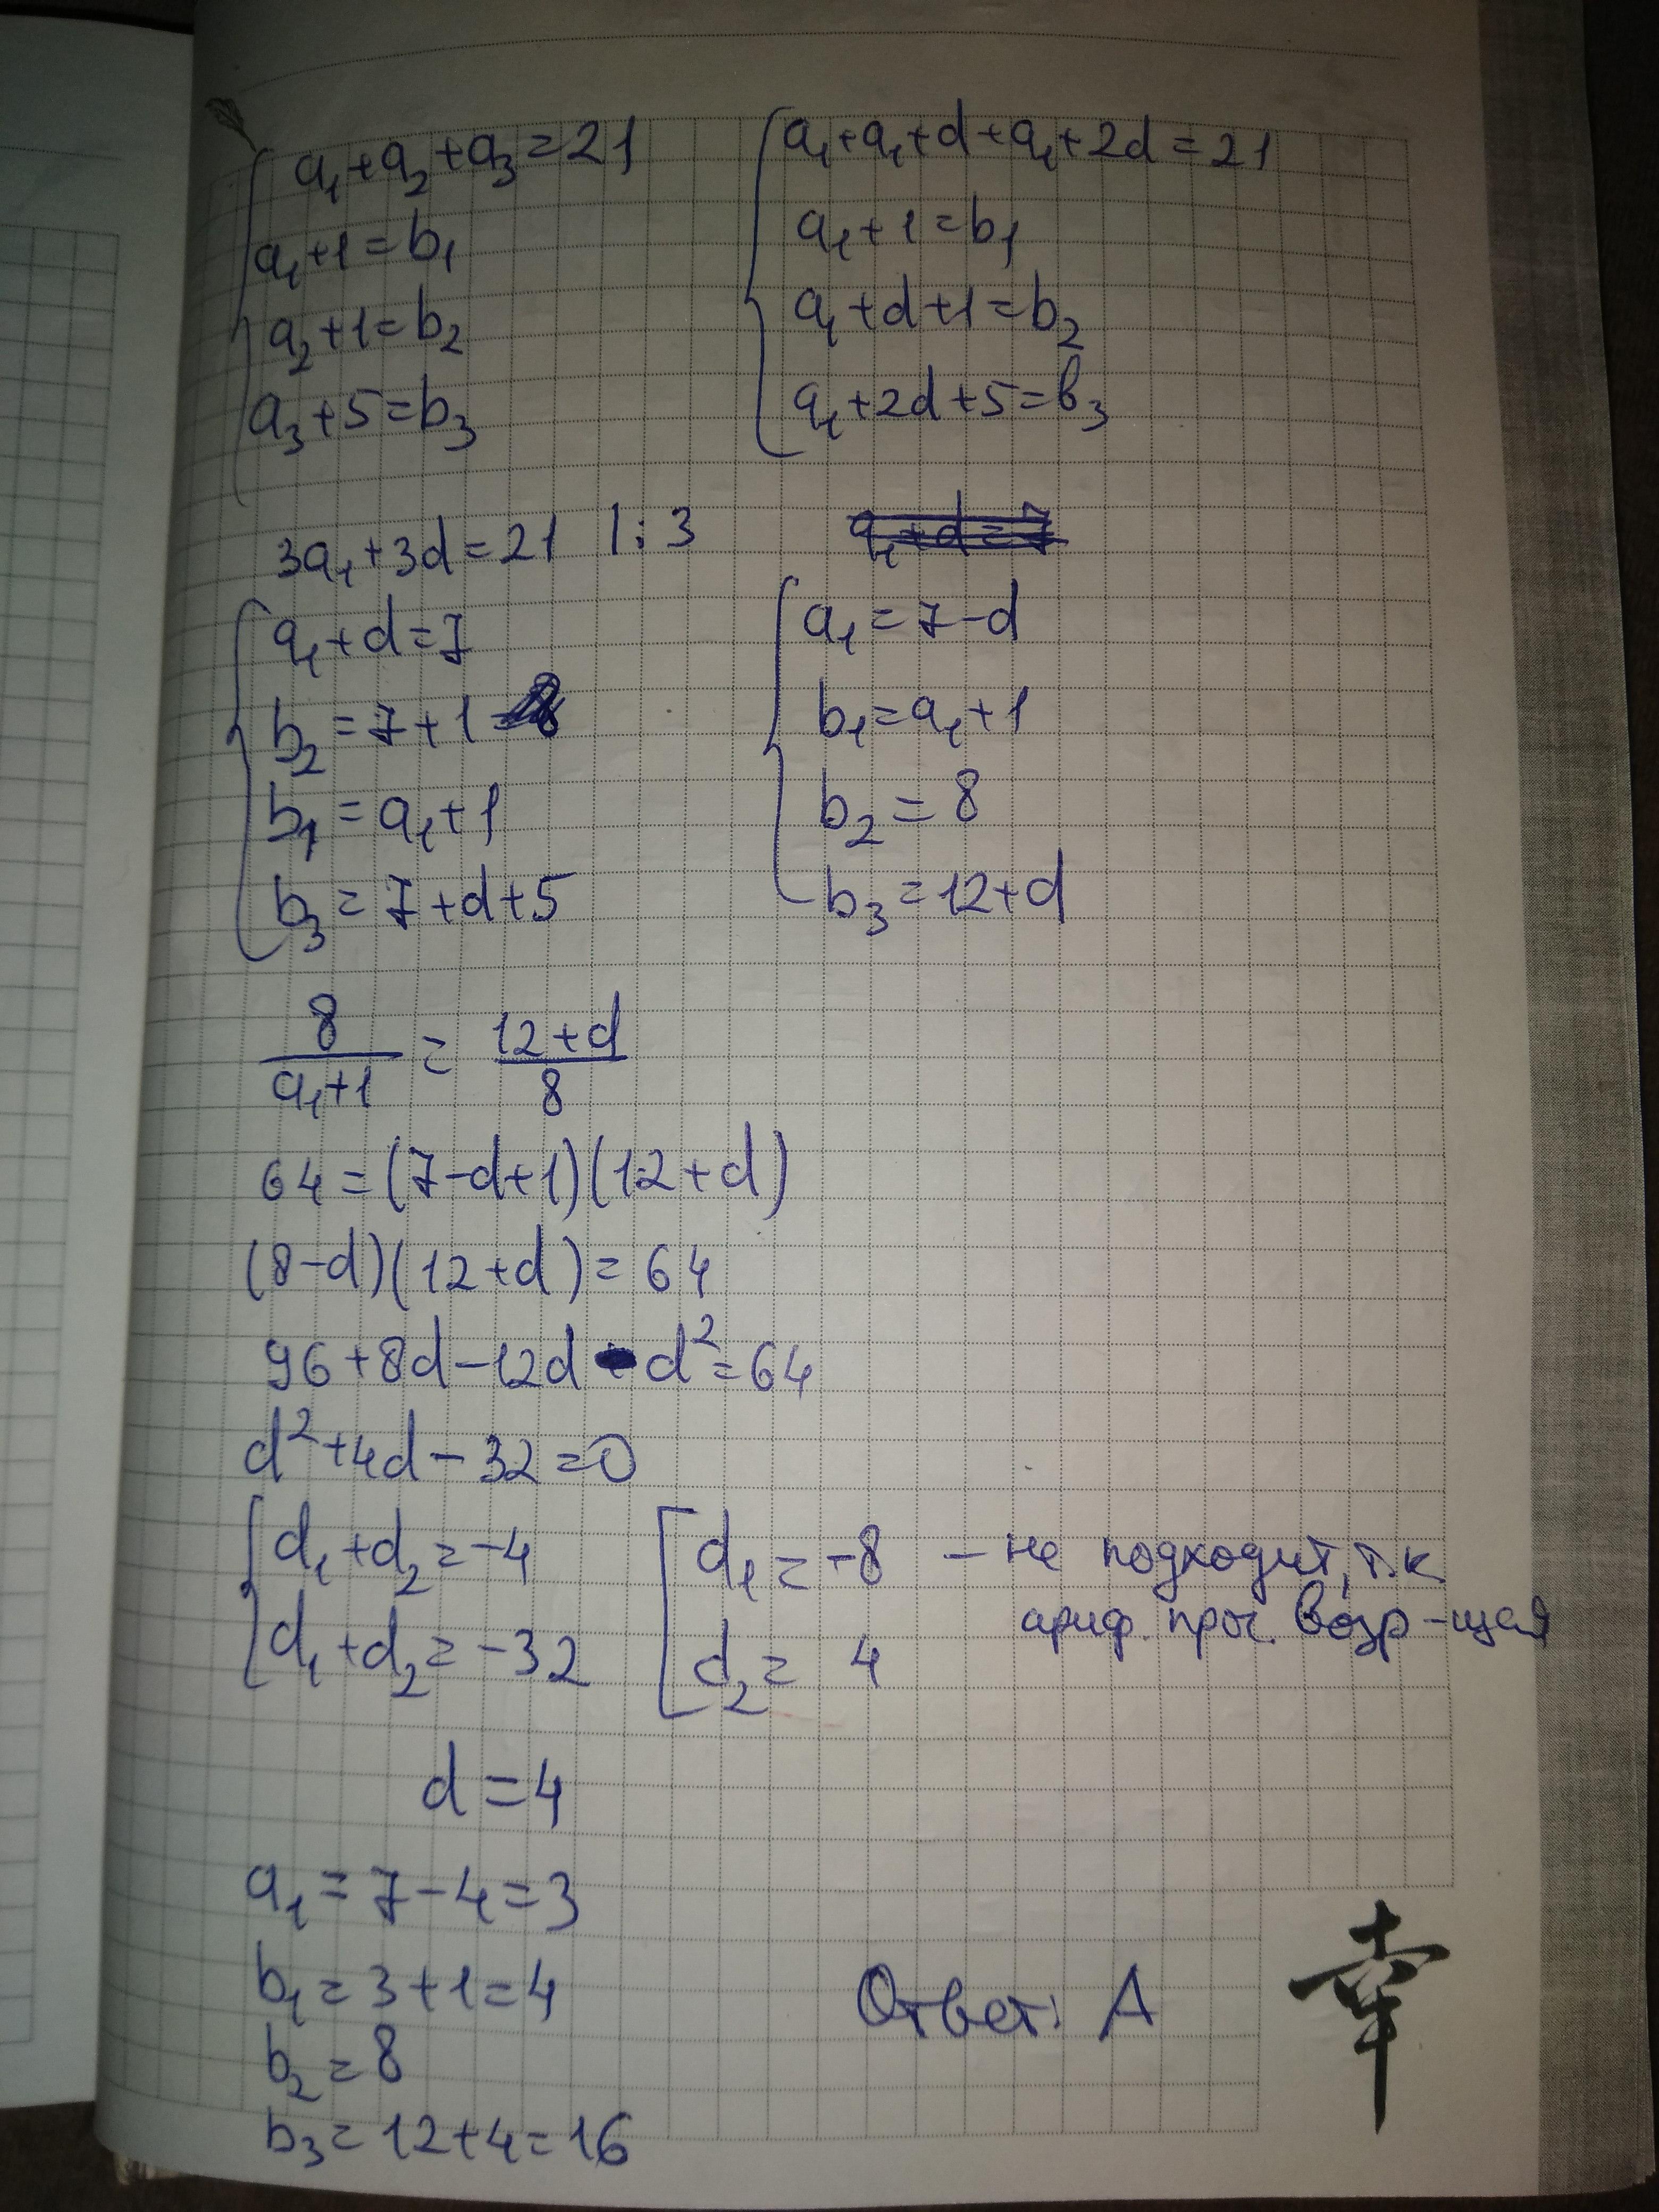 a₁+a₂+a₃=21
a₁+1=b₁
a₂+1=b₂
a₃+5=b₃
a₁+a₁+d+a₁+2d=21
a₁+1=b₁
a₁+d+1=b₂
a₁+2d+5=b₃
3a₁+3d=21 |:3
a₁+d=7
a₁+d=7
b₂=7+1=8
b₁=a₁+1
b₃=7+d+5
a₁=7-d
b₁=a₁+1
b₂=8
b₃=12+d
8/(a₁+1) = (12+d)/8
64=(7-d+1)(12+d)
(8-d)(12+d)=64
96+8d-12d-d²=64
d²+4d-32=0
d₁+d₂=-4
d₁+d₂=-32
d₁=-8 - не подходит, т.к
ариф. прог. возр-щая
d₂=4
d=4
a₁=7-4=3
b₁=3+1=4
b₂=8
b₃=12+4=16
Ответ: А
幸